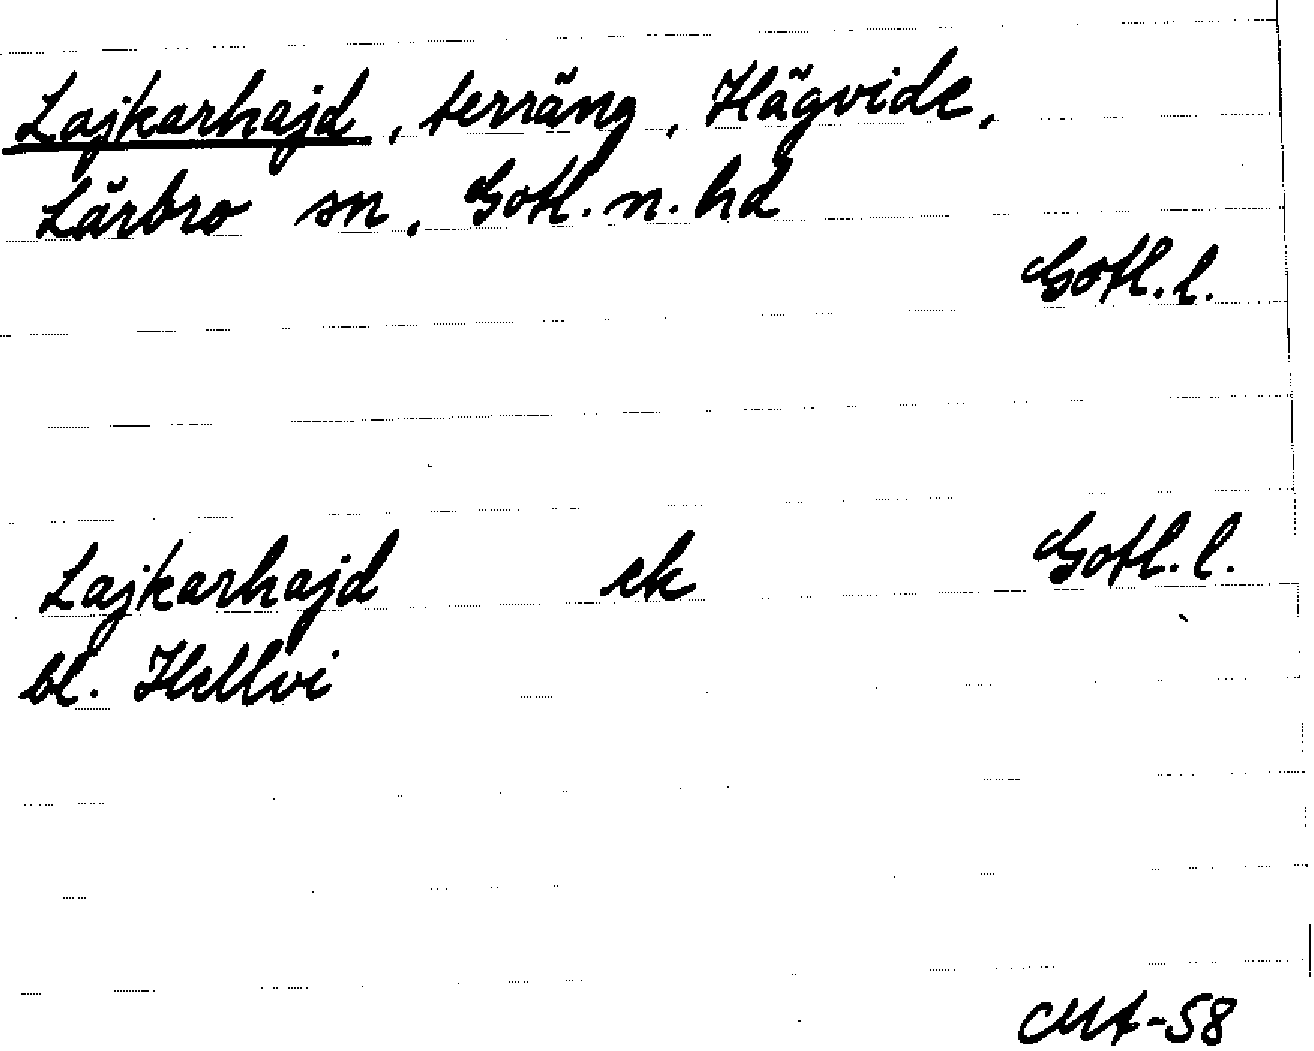 Lajkarhajd, terräng, Hägvide,
Lärbro sn, Gotl. n. hd
Gotl. l.
Lajkarhajd ek Gotl. l.
bl. Hellvi
-58